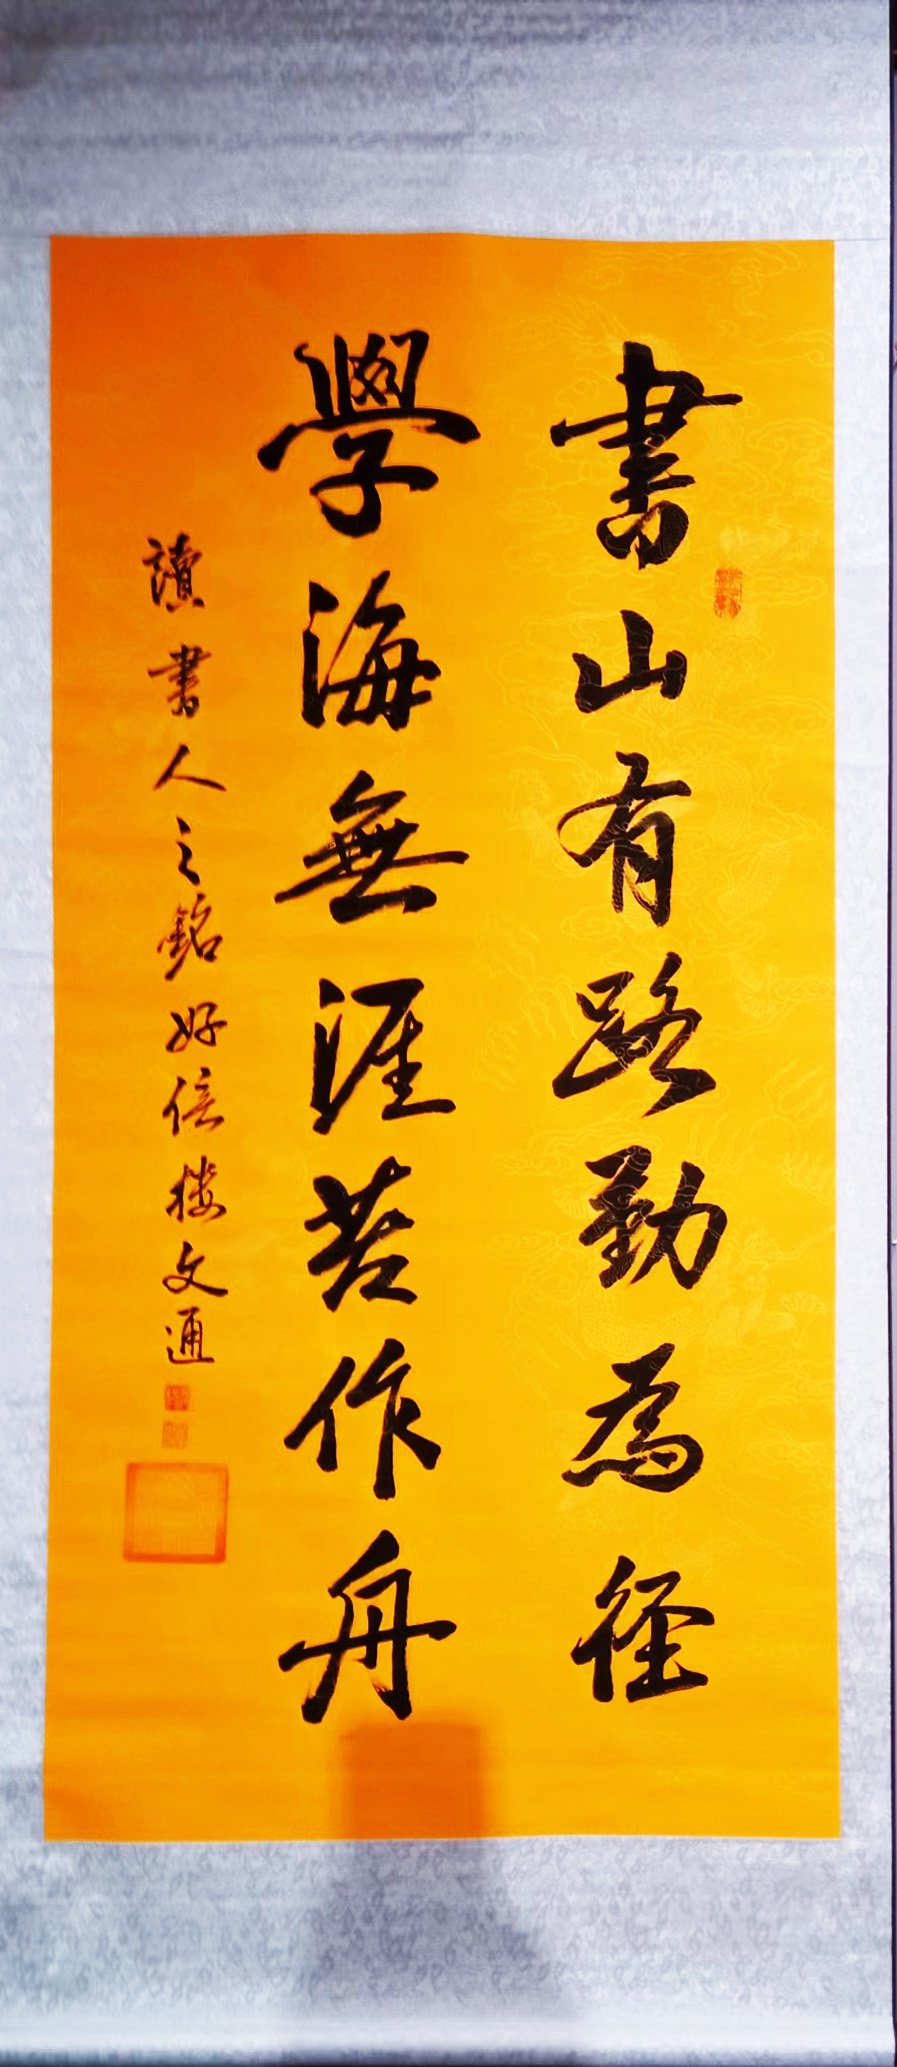 書山有路勤為径
學海無涯苦作舟
讀書人之銘好信楼文通